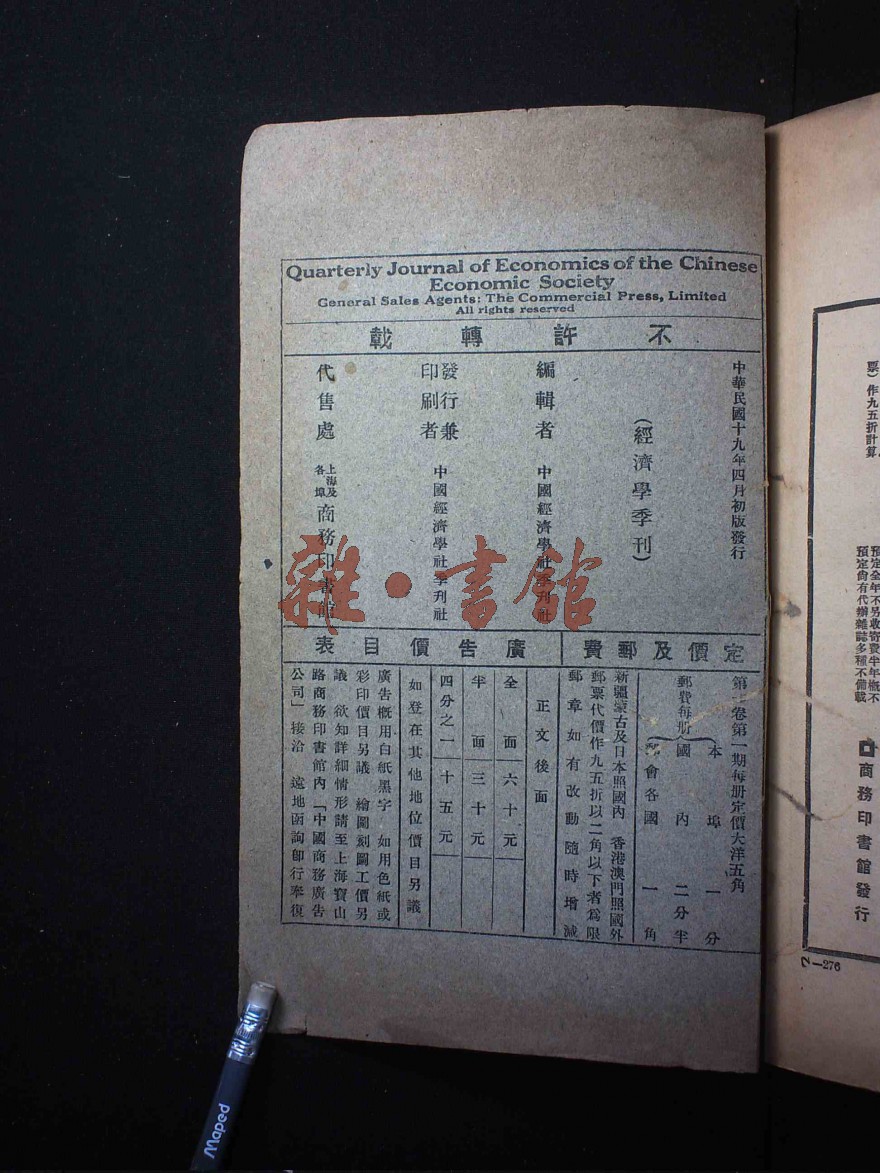 Quarterly Journal of Economics of the Chinese
Economic Society
General Sales Agents: The Commercial Press, Limited
All rights reserved
不許轉載
中華民國十九年四月初版發行
(經濟學季刊)
編輯者 中國經濟學社季刊社
發行兼
印刷者 中國經濟學社季刊社
代售處 上海及各埠 商務印書館
定價及郵費
第一卷第一期每册定價大洋五角
郵費每册
本埠一分
國內二分半
郵會各國一角
新疆蒙古及日本照國內 香港澳門照國外
郵票代價作九五折以二角以下者爲限
郵章如有改動隨時增減
廣告價目表
正文後面
全面六十元
半面三十元
四分之一十五元
如登在其他地位價目另議
廣告概用白紙黑字 如用色紙或
彩印價目另議 繪圖刻圖工價另
議 欲知詳細情形請至上海寶山
路商務印書館內「中國商務廣告
公司」接洽 遠地函詢卽行奉復
雜·書館
票)作九五折計算
預定全年不另收寄費半年概不
預定尙有代辦雜誌多種不備載
商務印書館發行
2—276
Maped